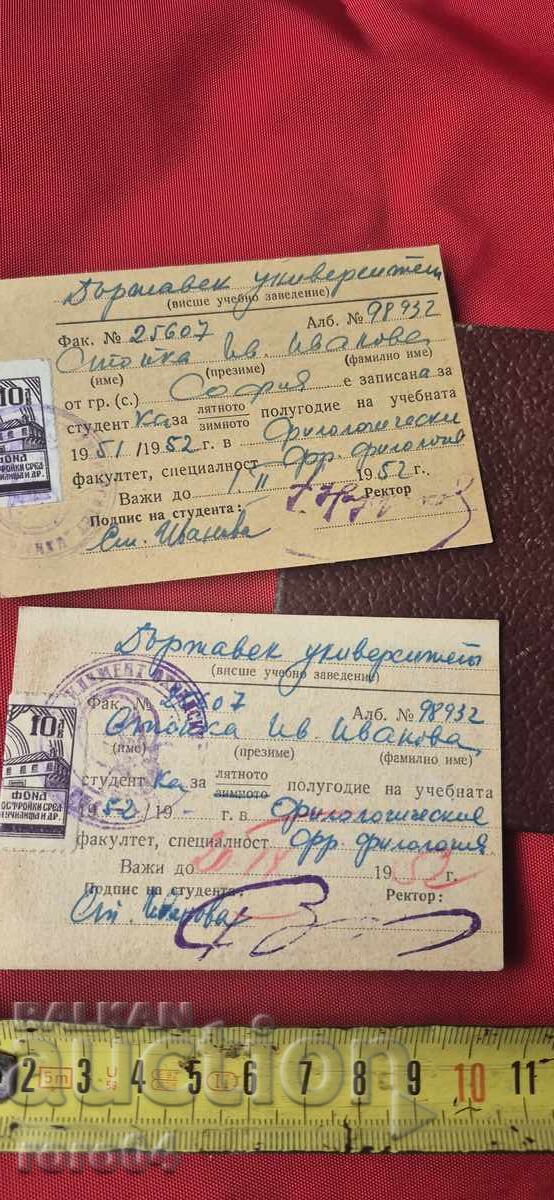 Държавен университет
(висше учебно заведение)
Фак. № 25607 Алб. № 98932
Стойка Ив. Иванова
(име) (презиме) (фамилно име)
от гр. (с.) София е записана за
студент ка за лятното
зимното полугодие на учебната
1951/1952 г. в Филологически
факултет, специалност Фр. филология
Важи до 1. II 1952 г.
Подпис на студента: Ректор
Ст. Иванова
10 ЛВ
ФОНД
ПОСТРОЙКИ СРЕД.
УЧИЛИЩА И ДР.
Държавен университет
(висше учебно заведение)
Фак. № 25607 Алб. № 98932
Стойка Ив. Иванова
(име) (презиме) (фамилно име)
студент ка за лятното
зимното полугодие на учебната
1952/19 - г. в Филологическия
факултет, специалност Фр. филология
Важи до 20 IX 1952 г.
Подпис на студента: Ректор:
Ст. Иванова
10 ЛВ
ФОНД
ПОСТРОЙКИ СРЕД.
УЧИЛИЩА И ДР.
BALKAN
auction
roro64
2 5m 3 4 5 6 7 8 9 10 11